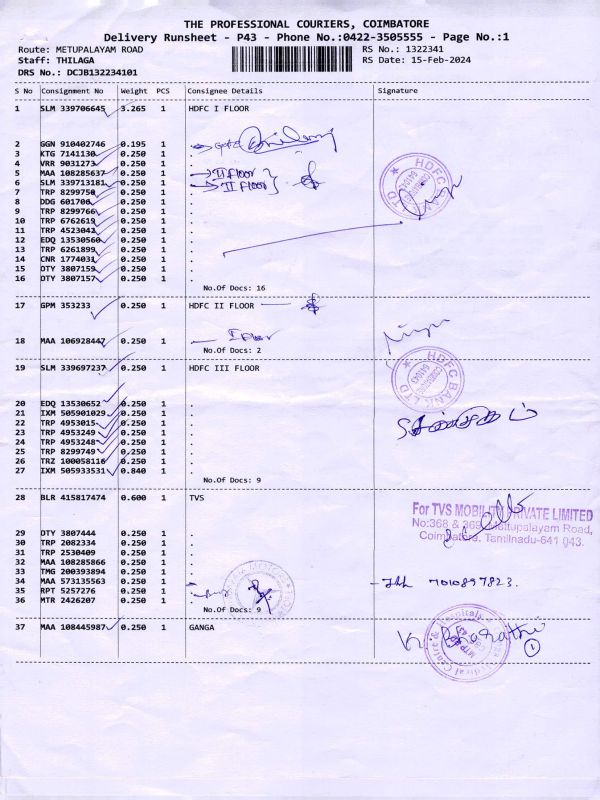 THE PROFESSIONAL COURIERS, COIMBATORE
Delivery Runsheet - P43 - Phone No.:0422-3505555 - Page No.:1
Route: METUPALAYAM ROAD RS No.: 1322341
Staff: THILAGA RS Date: 15-Feb-2024
DRS No.: DCJB132234101
S No Consignment No Weight PCS Consignee Details Signature
1 SLM 339706645 3.265 1 HDFC I FLOOR
2 GGN 910402746 0.195 1 .
3 KTG 7141130 0.250 1 .
4 VRR 9031273 0.250 1 .
5 MAA 108285637 0.250 1 . II Floor
6 SLM 339713181 0.250 1 . II Floor
7 TRP 8299750 0.250 1 .
8 DDG 601706 0.250 1 .
9 TRP 8299766 0.250 1 .
10 TRP 6762619 0.250 1 .
11 TRP 4523042 0.250 1 .
12 EDQ 13530560 0.250 1 .
13 TRP 6261899 0.250 1 .
14 CNR 1774031 0.250 1 .
15 DTY 3807159 0.250 1 .
16 DTY 3807157 0.250 1 .
No.Of Docs: 16
HDFC BANK LTD
17 GPM 353233 0.250 1 HDFC II FLOOR
18 MAA 106928447 0.250 1 . I Floor
No.Of Docs: 2
19 SLM 339697237 0.250 1 HDFC III FLOOR
HDFC BANK LTD
COIMBATORE
641043
20 EDQ 13530652 0.250 1 .
21 IXM 505901029 0.250 1 .
22 TRP 4953015 0.250 1 .
23 TRP 4953249 0.250 1 .
24 TRP 4953248 0.250 1 .
25 TRP 8299749 0.250 1 .
26 TRZ 100058116 0.250 1 .
27 IXM 505933531 0.840 1 .
No.Of Docs: 9
28 BLR 415817474 0.600 1 TVS
For TVS MOBILITY PRIVATE LIMITED
No:368 & 369, Mettupalayam Road,
Coimbatore, Tamilnadu-641 043.
29 DTY 3807444 0.250 1 .
30 TRP 2082334 0.250 1 .
31 TRP 2530409 0.250 1 .
32 MAA 108285866 0.250 1 .
33 TMG 200393894 0.250 1 .
34 MAA 573135563 0.250 1 . 7010897823.
35 RPT 5257276 0.250 1 .
36 MTR 2426207 0.250 1 .
No.Of Docs: 9
37 MAA 108445987 0.250 1 GANGA
1